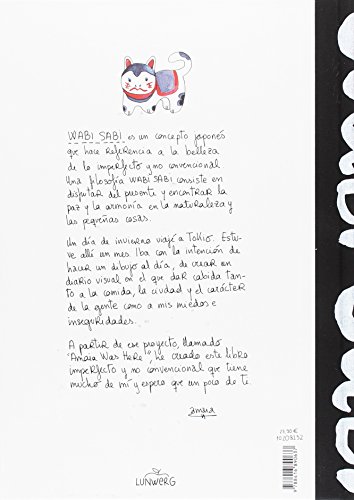 WABI SABI es un concepto japonés
que hace referencia a la belleza
de lo imperfecto y no convencional
Una filosofía WABI SABI consiste en
disfrutar del presente y encontrar la
paz y la armonía en la naturaleza y
las pequeñas cosas.
Un día de invierno viajé a Tokio. Estu-
ve allí un mes. Iba con la intención de
hacer un dibujo al día, de crear un
diario visual en el que dar cabida tan-
to a la comida, la ciudad y el carácter
de la gente como a mis miedos e
inseguridades.
A partir de ese proyecto, llamado
"Amaia Was Here", he creado este libro
imperfecto y no convencional que tiene
mucho de mí y espero que un poco de ti.
amaia
LUNWERG
WABI SABI